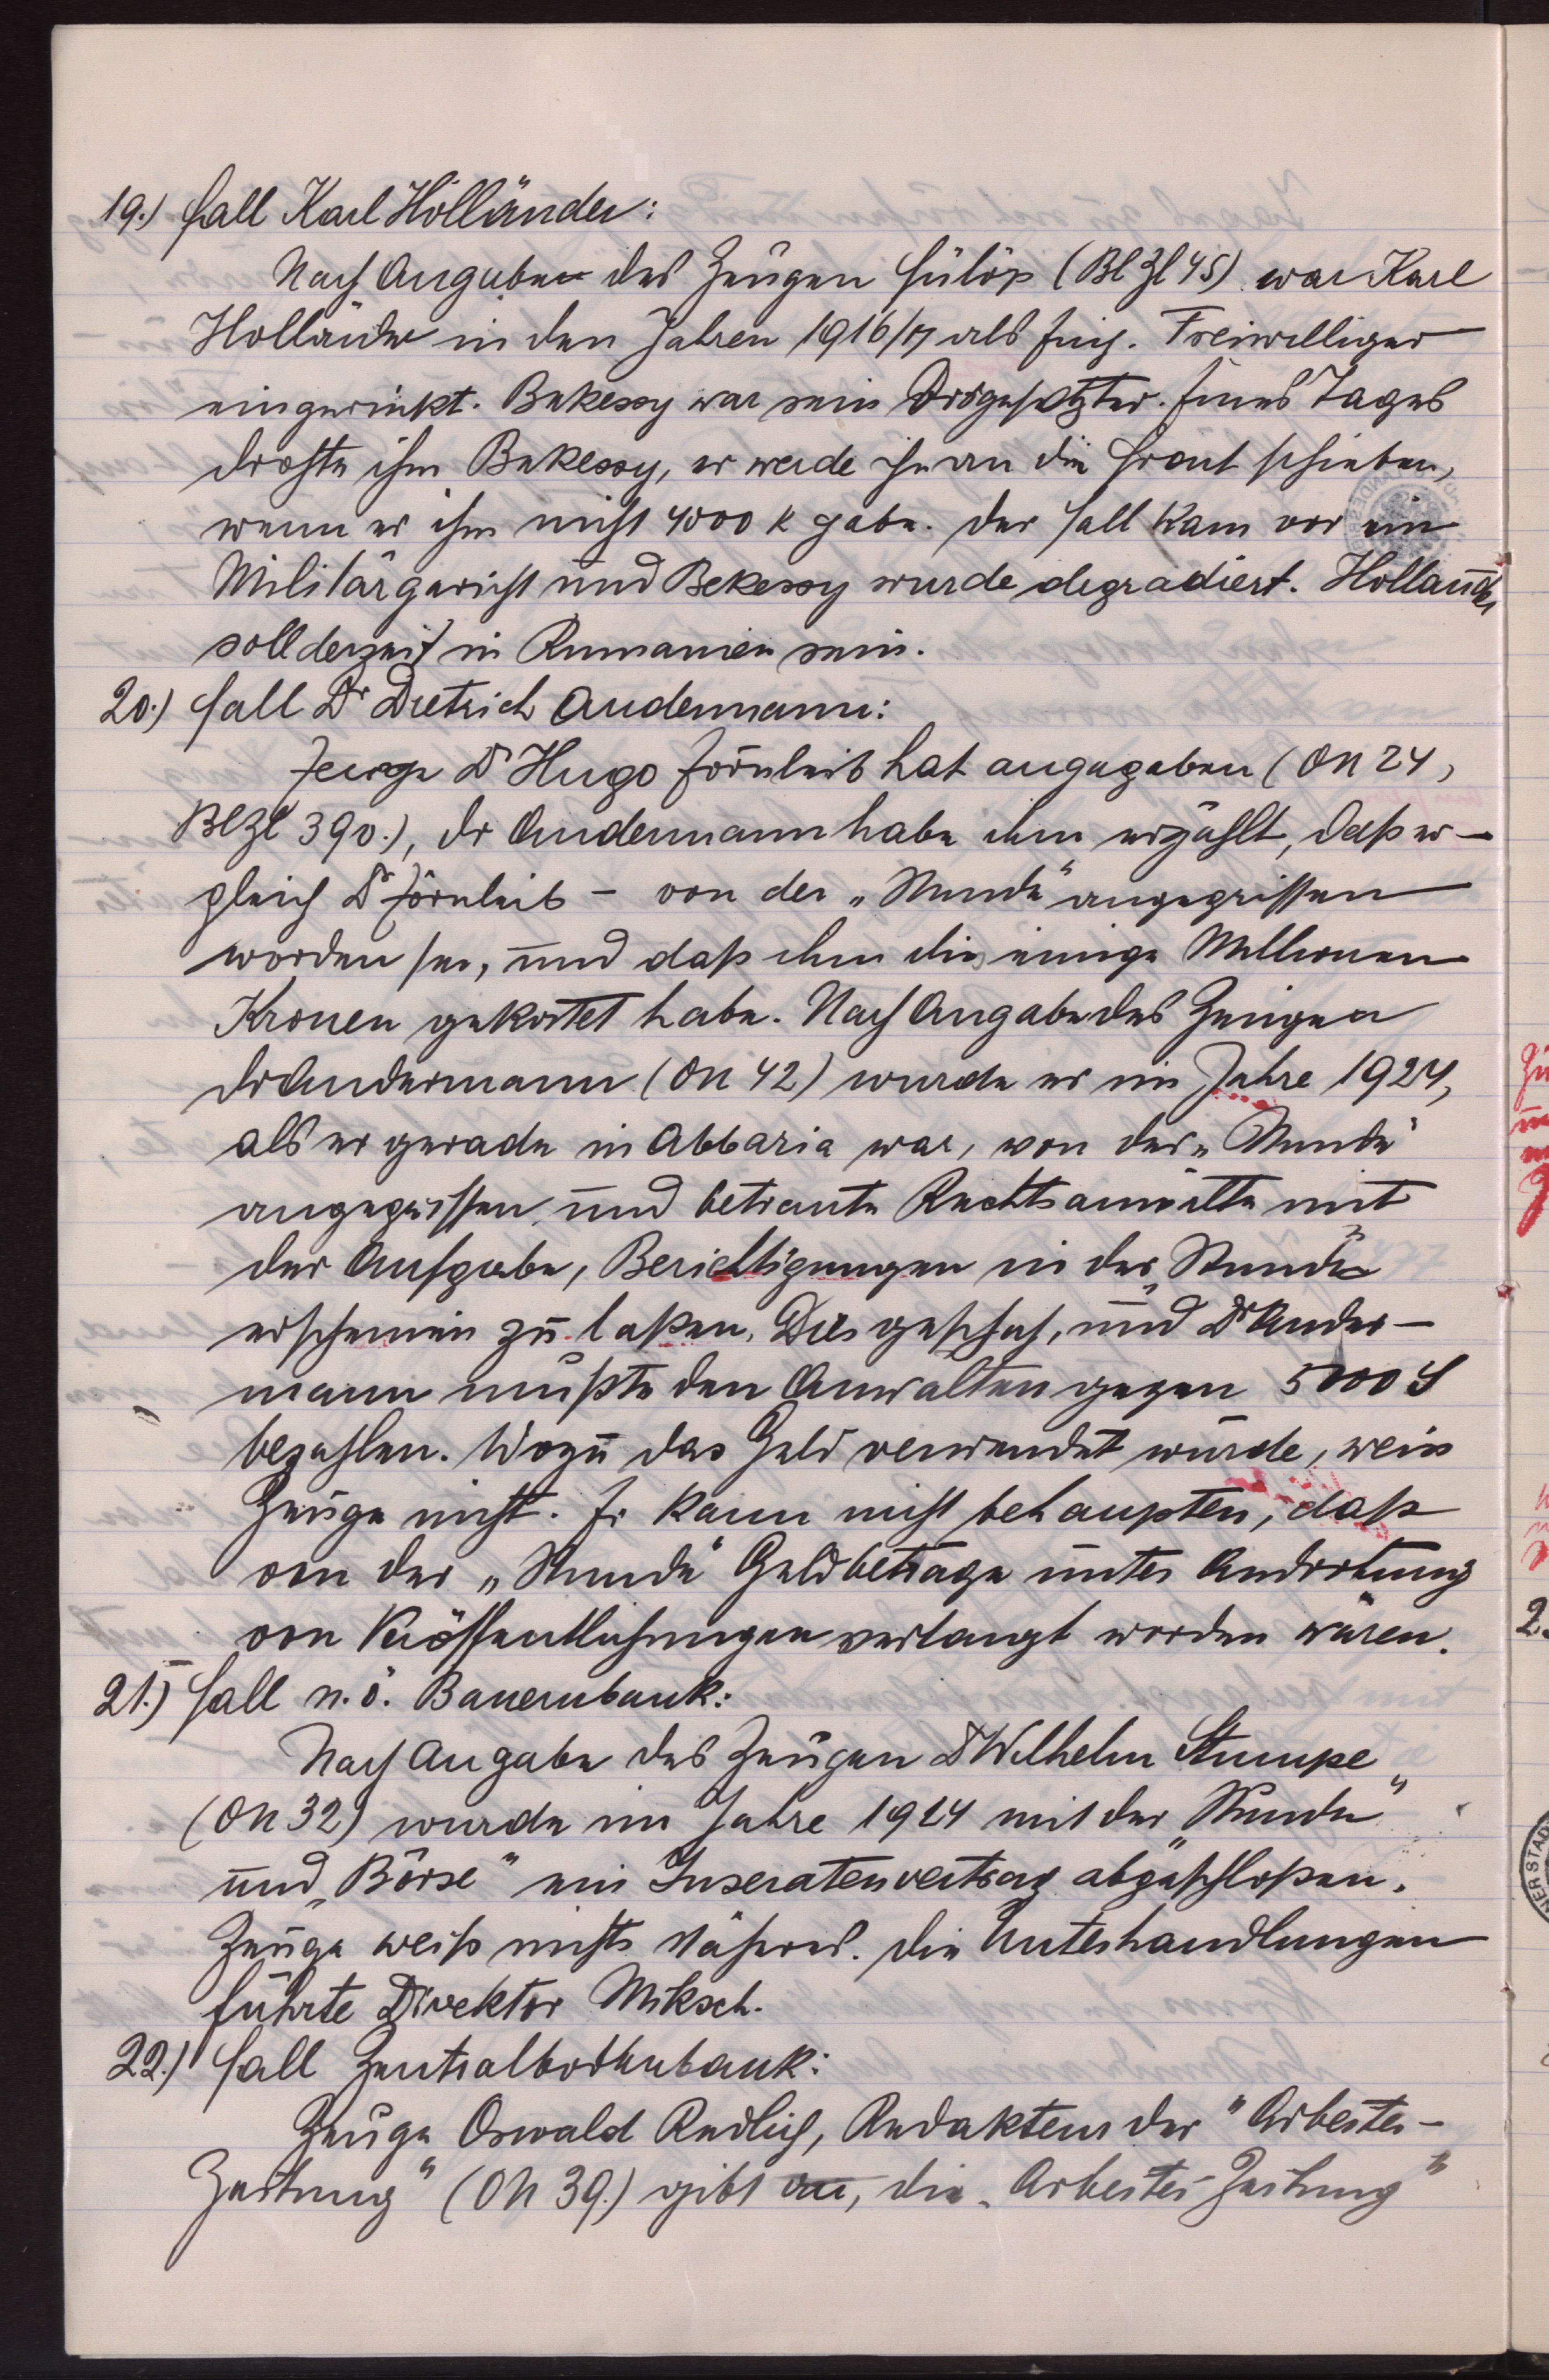 19.) Fall Karl Holländer:
Nach Angaben des Zeugen Fülöp (Bl Zl 45) war Karl
Holländer in den Jahren 1916/17 als Einj. Freiwilliger
eingerückt. Bekessy war sein Vorgesetzter. Eines Tages
drohte ihm Bekessy, er werde ihn an die Front schieben,
wenn er ihm nicht 4000 K gebe. Der Fall kam vor ein
Militärgericht und Bekessy wurde degradiert. Holländer
soll derzeit in Rumänien sein.
20.) Fall Dr Dietrich Andermann:
Zeuge Dr Hugo Zörnleib hat angegeben (ON 24,
BlZl 390.), Dr Andermann habe ihm erzählt, daß er –
gleich Dr Zörnleib – von der „Stunde" angegriffen
worden sei, und daß ihm dies einige Millionen
Kronen gekostet habe. Nach Angabe des Zeugen
Dr Andermann (ON 42) wurde er im Jahre 1924,
als er gerade in Abbazia war, von der „Stunde"
angegriffen und betraute Rechtsanwälte mit
der Aufgabe, Berichtigungen in der „Stunde"
erscheinen zu laßen. Dies geschah, und Dr Ander-
mann mußte den Anwälten gegen 5000 S
bezahlen. Wozu das Geld verwendet wurde, weiß
Zeuge nicht. Er kann nicht behaupten, daß
von der „Stunde" Geldbeträge unter Androhung
von Veröffentlichungen verlangt worden wären.
21.) Fall n.ö. Bauernbank:
Nach Angabe des Zeugen Dr Wilhelm Stumpe
(ON 32) wurde im Jahre 1924 mit der „Stunde"
und „Börse" ein Inseratenvertrag abgeschloßen.
Zeuge weiß nichts Näheres. Die Unterhandlungen
führte Direktor Miksch.
22.) Fall Zentralbodenbank:
Zeuge Oswald Redlich, Redakteur der "Arbeiter-
Zeitung" (ON 39.) gibt an, die „Arbeiter-Zeitung"